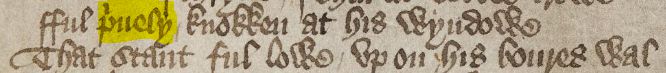 fful pͥuely knokken at his wyndowe
That stant ful lowe vp on his boures wal